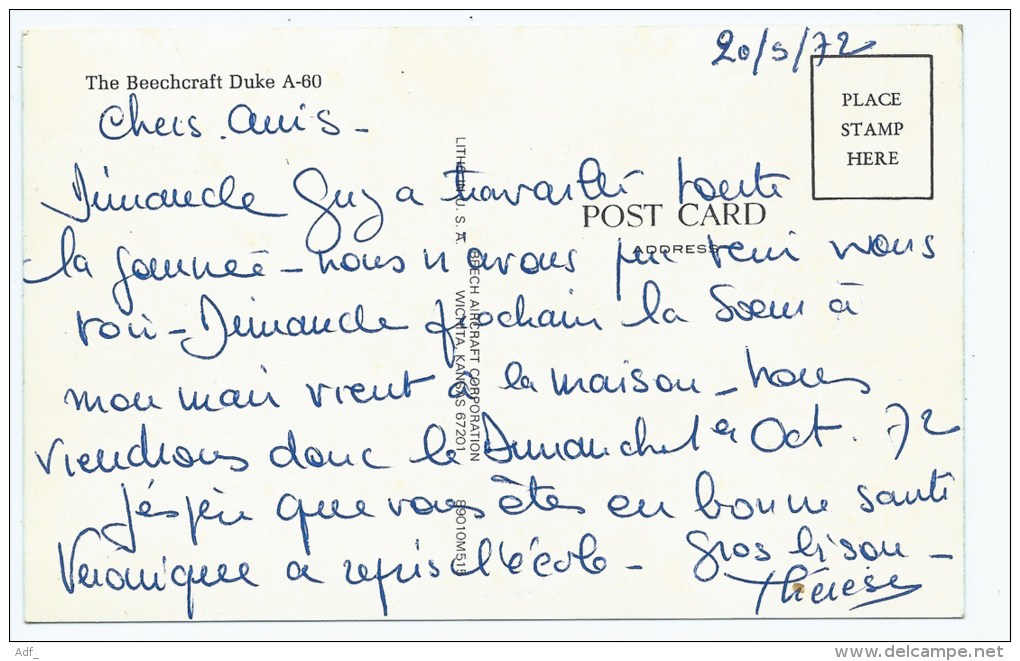 20/9/72
The Beechcraft Duke A-60
PLACE
STAMP
HERE
Chers Amis -
Dimanche Guy a travaillé toute
POST CARD
ADDRESS
la journée - nous n'avons pu venir vous
voir - Dimanche prochain la Soeur à
mon mari vient à la maison - nous
viendrons donc le Dimanche 1er Oct. 72
J'éspère que vous êtes en bonne santé
Véronique a repris l'école - Gros bisou -
Thérèse
LITHO IN U. S. A.
BEECH AIRCRAFT CORPORATION
WICHITA, KANSAS 67201
89010M515
Adf_
www.delcampe.net